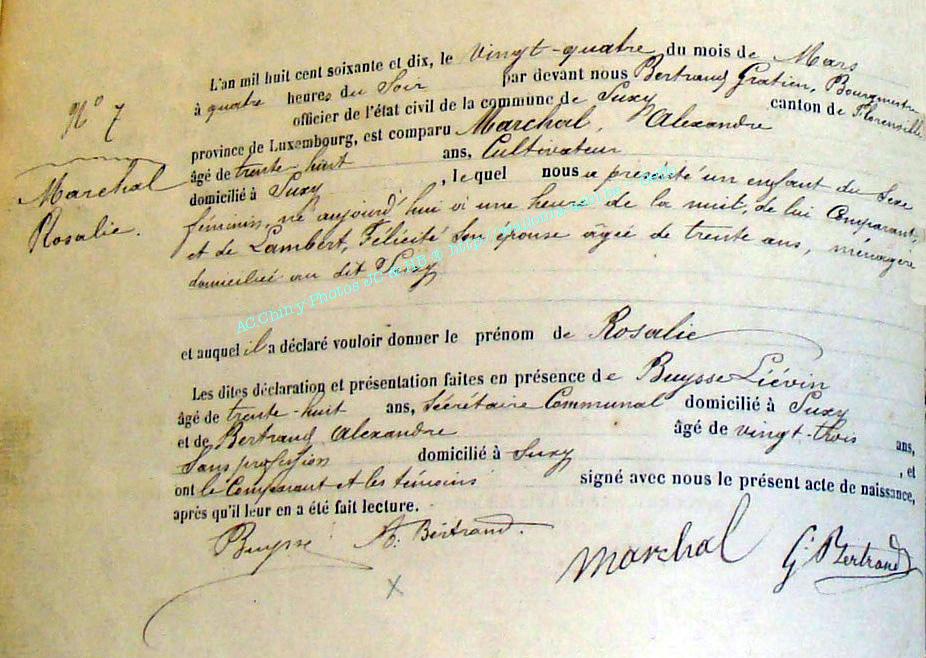 N° 7
Marchal
Rosalie.
L'an mil huit cent soixante et dix, le Vingt-quatre du mois de Mars
à quatre heures du Soir par devant nous Bertrand Gratien, Bourgmestre
officier de l'état civil de la commune de Suxy canton de Florenville
province de Luxembourg, est comparu Marchal, Alexandre
âgé de trente-huit ans, Cultivateur
domicilié à Suxy, lequel nous a présenté un enfant du Sexe
féminin, né aujourd'hui vi une heure de la nuit, de lui Comparant,
et de Lambert, Félicité Son épouse âgée de trente ans, ménagère
domicilié au dit Suxy
AC.Chiny Photos JC & MB @ http://
et auquel il a déclaré vouloir donner le prénom de Rosalie
Les dites déclaration et présentation faites en présence de Buysse Liévin
âgé de trente-huit ans, Sécrétaire Communal domicilié à Suxy
et de Bertrand Alexandre âgé de vingt-trois ans,
Sans profession domicilié à Suxy, et
ont le Comparant et les témoins signé avec nous le présent acte de naissance,
après qu'il leur en a été fait lecture.
Buysse A. Bertrand. Marchal G. Bertrand